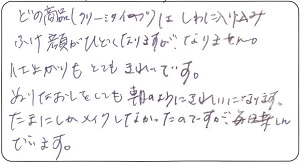 どの商品(クリームタイプ)はしわに入り込み
ふけ顔がひどくなりますが、なりません。
仕上がりもとてもきれいです。
ぬりなおしをしても朝のようにきれいになります。
たまにしかメイクしなかったのですが、毎日楽しん
でいます。